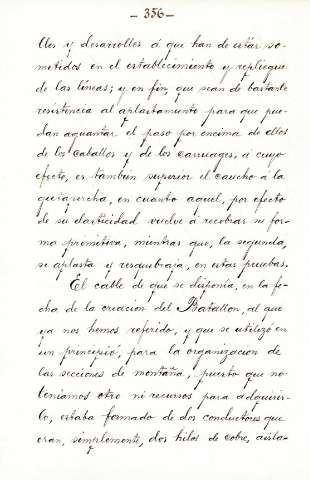 - 356 -
lles y desarrolles á que han de estar so-
metidos en el establecimiento y repliegue
de las líneas; y en fin, que sean de bastante
resistencia al aplastamiento para que pue-
dan aguantar el paso por encima de ellos
de los caballos y de los carruages, á cuyo
efecto, es tambien superior el caucho á la
gutapercha, en cuanto aquel, por efecto
de su elasticidad vuelve á recobrar su for-
ma primitiva, mientras que, la segunda,
se aplasta y resquebraja, en estas pruebas.
El cable de que se disponia, en la fe-
cha de la creacion del Batallon, al que
ya nos hemos referido, y que se utilizó en
un principió, para la organizacion de
las secciones de montaña, puesto que no
teniamos otro ni recursos para adquirir-
lo, estaba formado de dos conductores que
eran, simplemente, dos hilos de cobre, aisla-